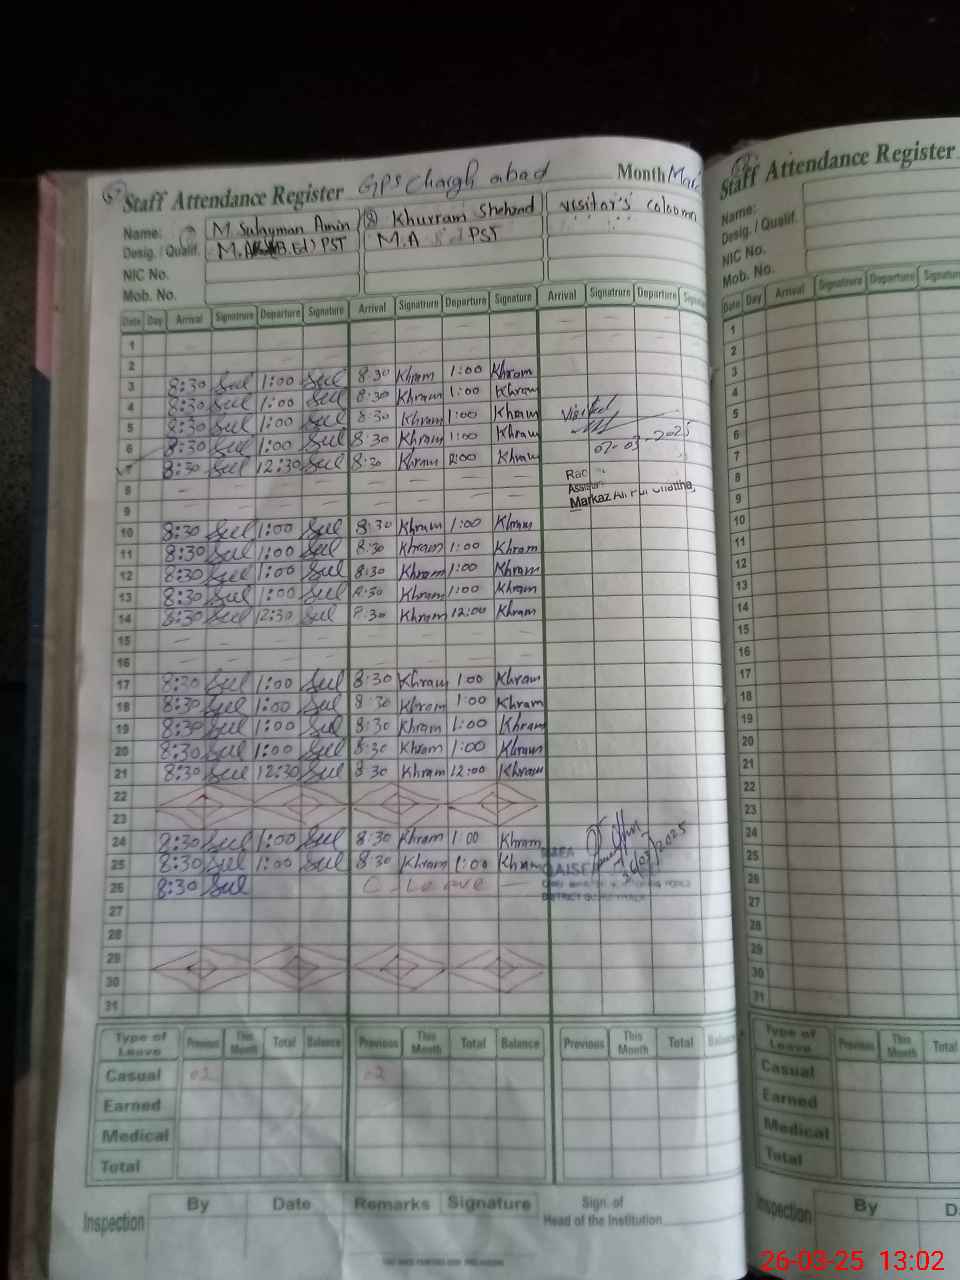 Staff Attendance Register GPS Charghabad Month
Name: M. Sulayman Amin (8) Khurram Shehzad visitor's coloomn
Desig. / Qualif. M.A (B.Ed) PST M.A PST
NIC No.
Mob. No.
Date Day Arrival Signatrure Departure Signature Arrival Signatrure Departure Signature Arrival Signatrure Departure
1 — — — — — — — —
2 — — — — — — — —
3 8:30 Sul 1:00 Sul 8:30 Khram 1:00 Khram
4 8:30 Sul 1:00 Sul 8:30 Khram 1:00 Khram
5 8:30 Sul 1:00 Sul 8:30 Khram 1:00 Khram Visited
6 8:30 Sul 1:00 Sul 8:30 Khram 1:00 Khram 07-03-2025
7 8:30 Sul 12:30 Sul 8:30 Khram 12:00 Khram
8 — — — — — — — —
9 — — — — — — — — Markaz
10 8:30 Sul 1:00 Sul 8:30 Khram 1:00 Khram
11 8:30 Sul 1:00 Sul 8:30 Khram 1:00 Khram
12 8:30 Sul 1:00 Sul 8:30 Khram 1:00 Khram
13 8:30 Sul 1:00 Sul 8:30 Khram 1:00 Khram
14 8:30 Sul 12:30 Sul 8:30 Khram 12:00 Khram
15 — — — — — — — —
16 — — — — — — — —
17 8:30 Sul 1:00 Sul 8:30 Khram 1:00 Khram
18 8:30 Sul 1:00 Sul 8:30 Khram 1:00 Khram
19 8:30 Sul 1:00 Sul 8:30 Khram 1:00 Khram
20 8:30 Sul 1:00 Sul 8:30 Khram 1:00 Khram
21 8:30 Sul 12:30 Sul 8:30 Khram 12:00 Khram
22
23
24 8:30 Sul 1:00 Sul 8:30 Khram 1:00 Khram
25 8:30 Sul 1:00 Sul 8:30 Khram 1:00 Khram
26 8:30 Sul C-Leave —
DISTRICT
27
28
29
30
31
Type of Leave Previous This Month Total Balance Previous This Month Total Balance Previous This Month Total Balance
Casual 02 02
Earned
Medical
Total
Inspection By Date Remarks Signature Sign. of
Head of the Institution
Staff Attendance Register
Name:
Desig. / Qualif.
NIC No.
Mob. No.
Date Day Arrival Signatrure Departure
1
2
3
4
5
6
7
8
9
10
11
12
13
14
15
16
17
18
19
20
21
22
23
24
25
26
27
28
29
30
31
Type of Leave Previous This Month Total
Casual
Earned
Medical
Total
Inspection By
26-03-25 13:02